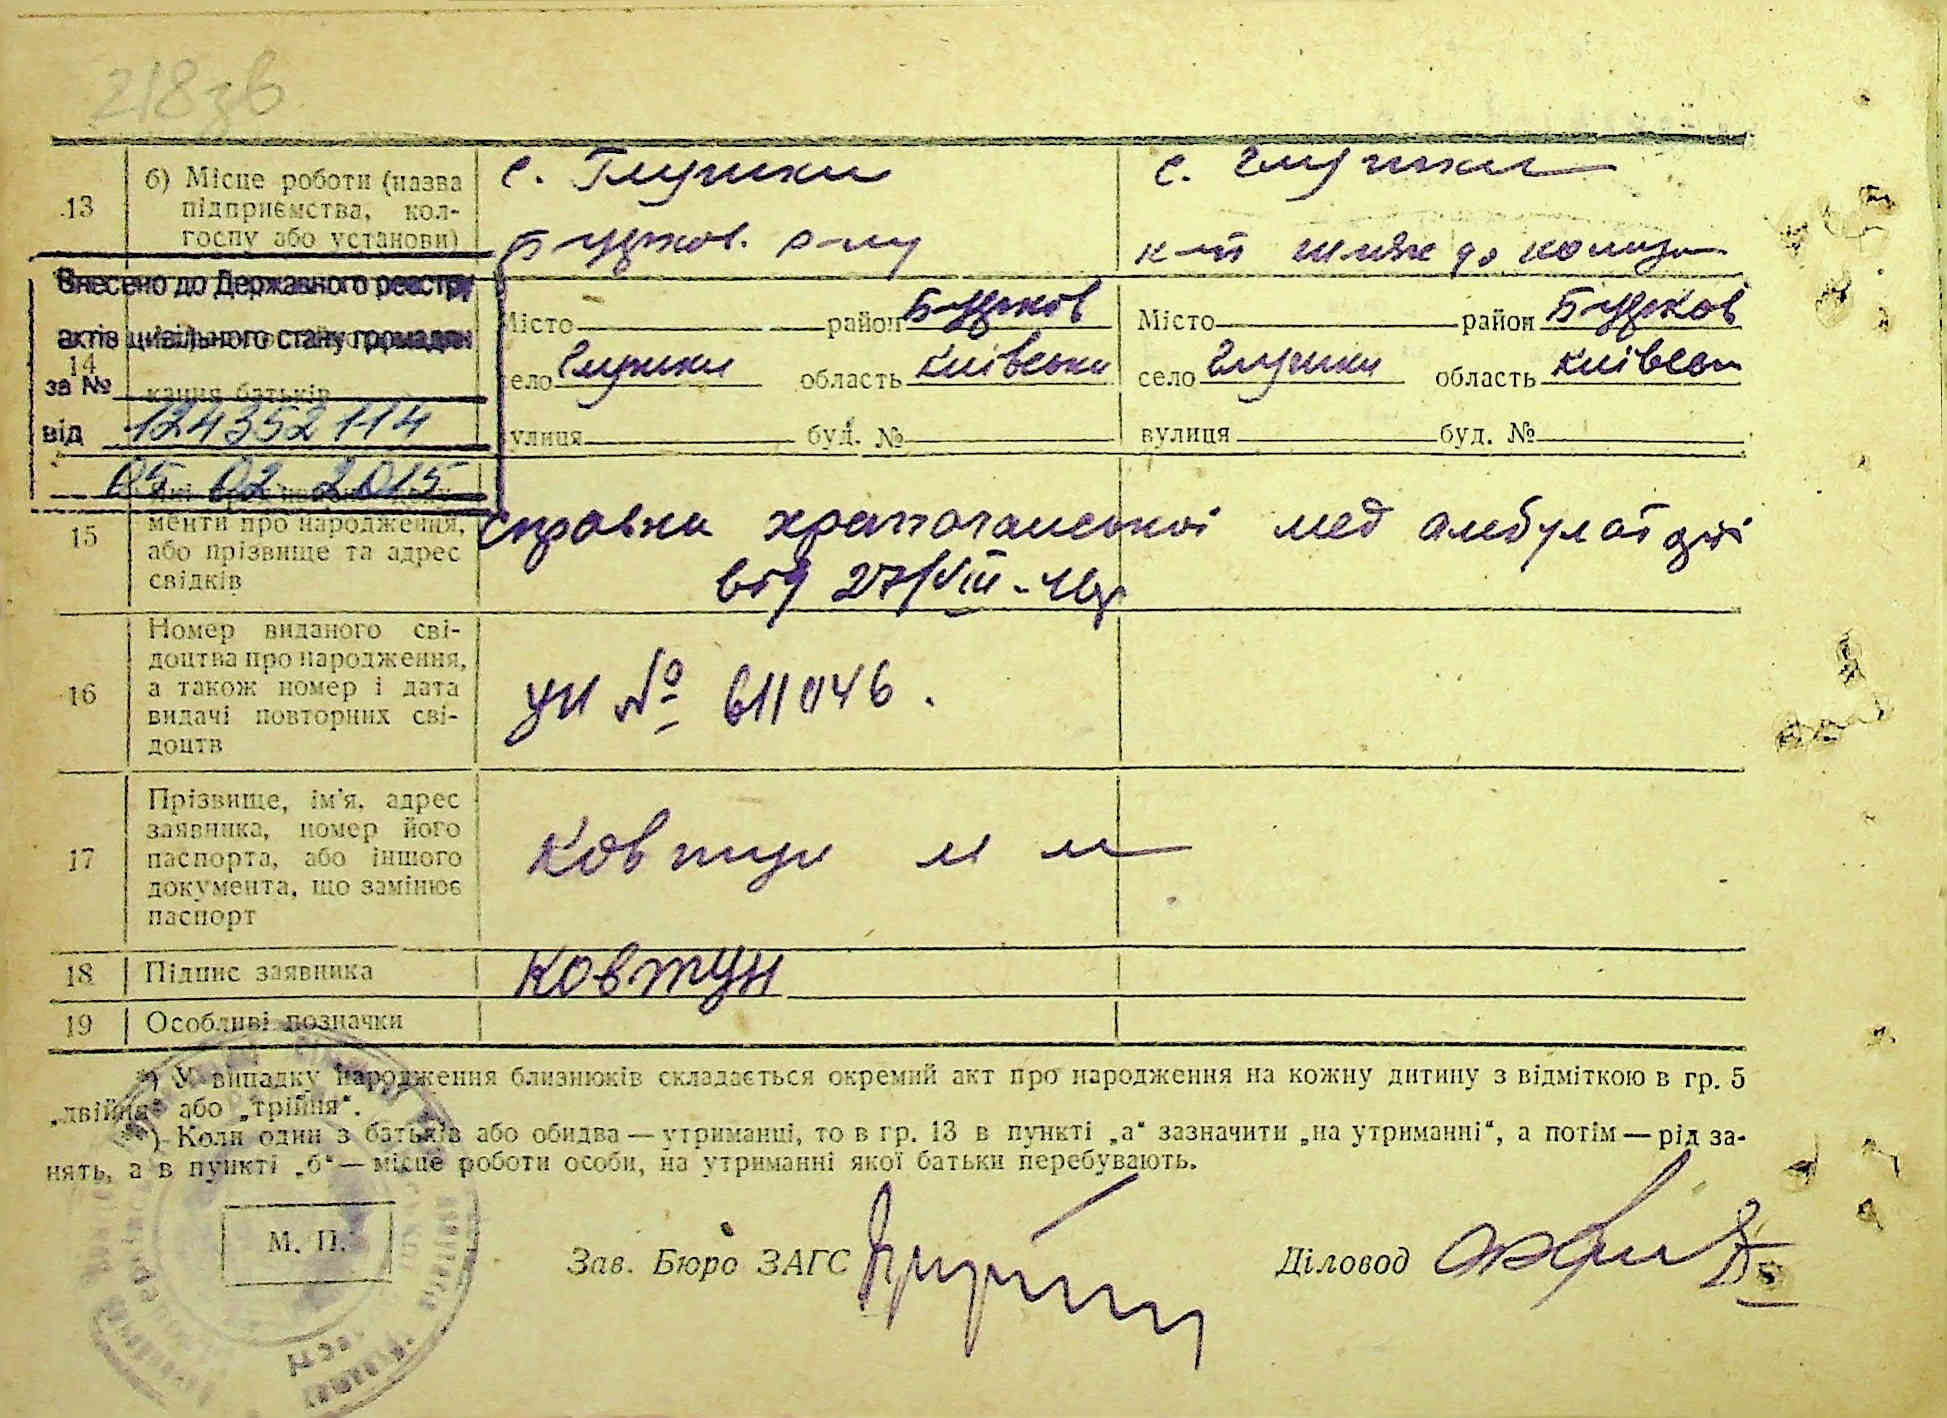 218зв
13
б) Місце роботи (назва
підприємства, кол-
госпу або установи)
с. Глушки
с. Глушки
к-п
Внесено до Державного реєстру
актів цивільного стану громадян
14
за №
кання батьків
від 124352114
05 02 2015
Місто район
село Глушки область Київськ
вулиця буд. №
Місто район
село Глушки область Київськ
вулиця буд. №
15
менти про народження,
або прізвище та адрес
свідків
справка мед амбулаторії
від 27/VIII
16
Номер виданого сві-
доцтва про народження,
а також номер і дата
видачі повторних сві-
доцтв
№ 611046.
17
Прізвище, ім'я, адрес
заявника, номер його
паспорта, або іншого
документа, що замінює
паспорт
Ковтун м м
18
Підпис заявника
Ковтун
19
Особливі позначки
*) У випадку народження близнюків складається окремий акт про народження на кожну дитину з відміткою в гр. 5
„двійня“ або „трійня“.
**) Коли один з батьків або обидва — утриманці, то в гр. 13 в пункті „а“ зазначити „на утриманні“, а потім — рід за-
нять, а в пункті „б“ — місце роботи особи, на утриманні якої батьки перебувають.
М. П.
Зав. Бюро ЗАГС
Діловод